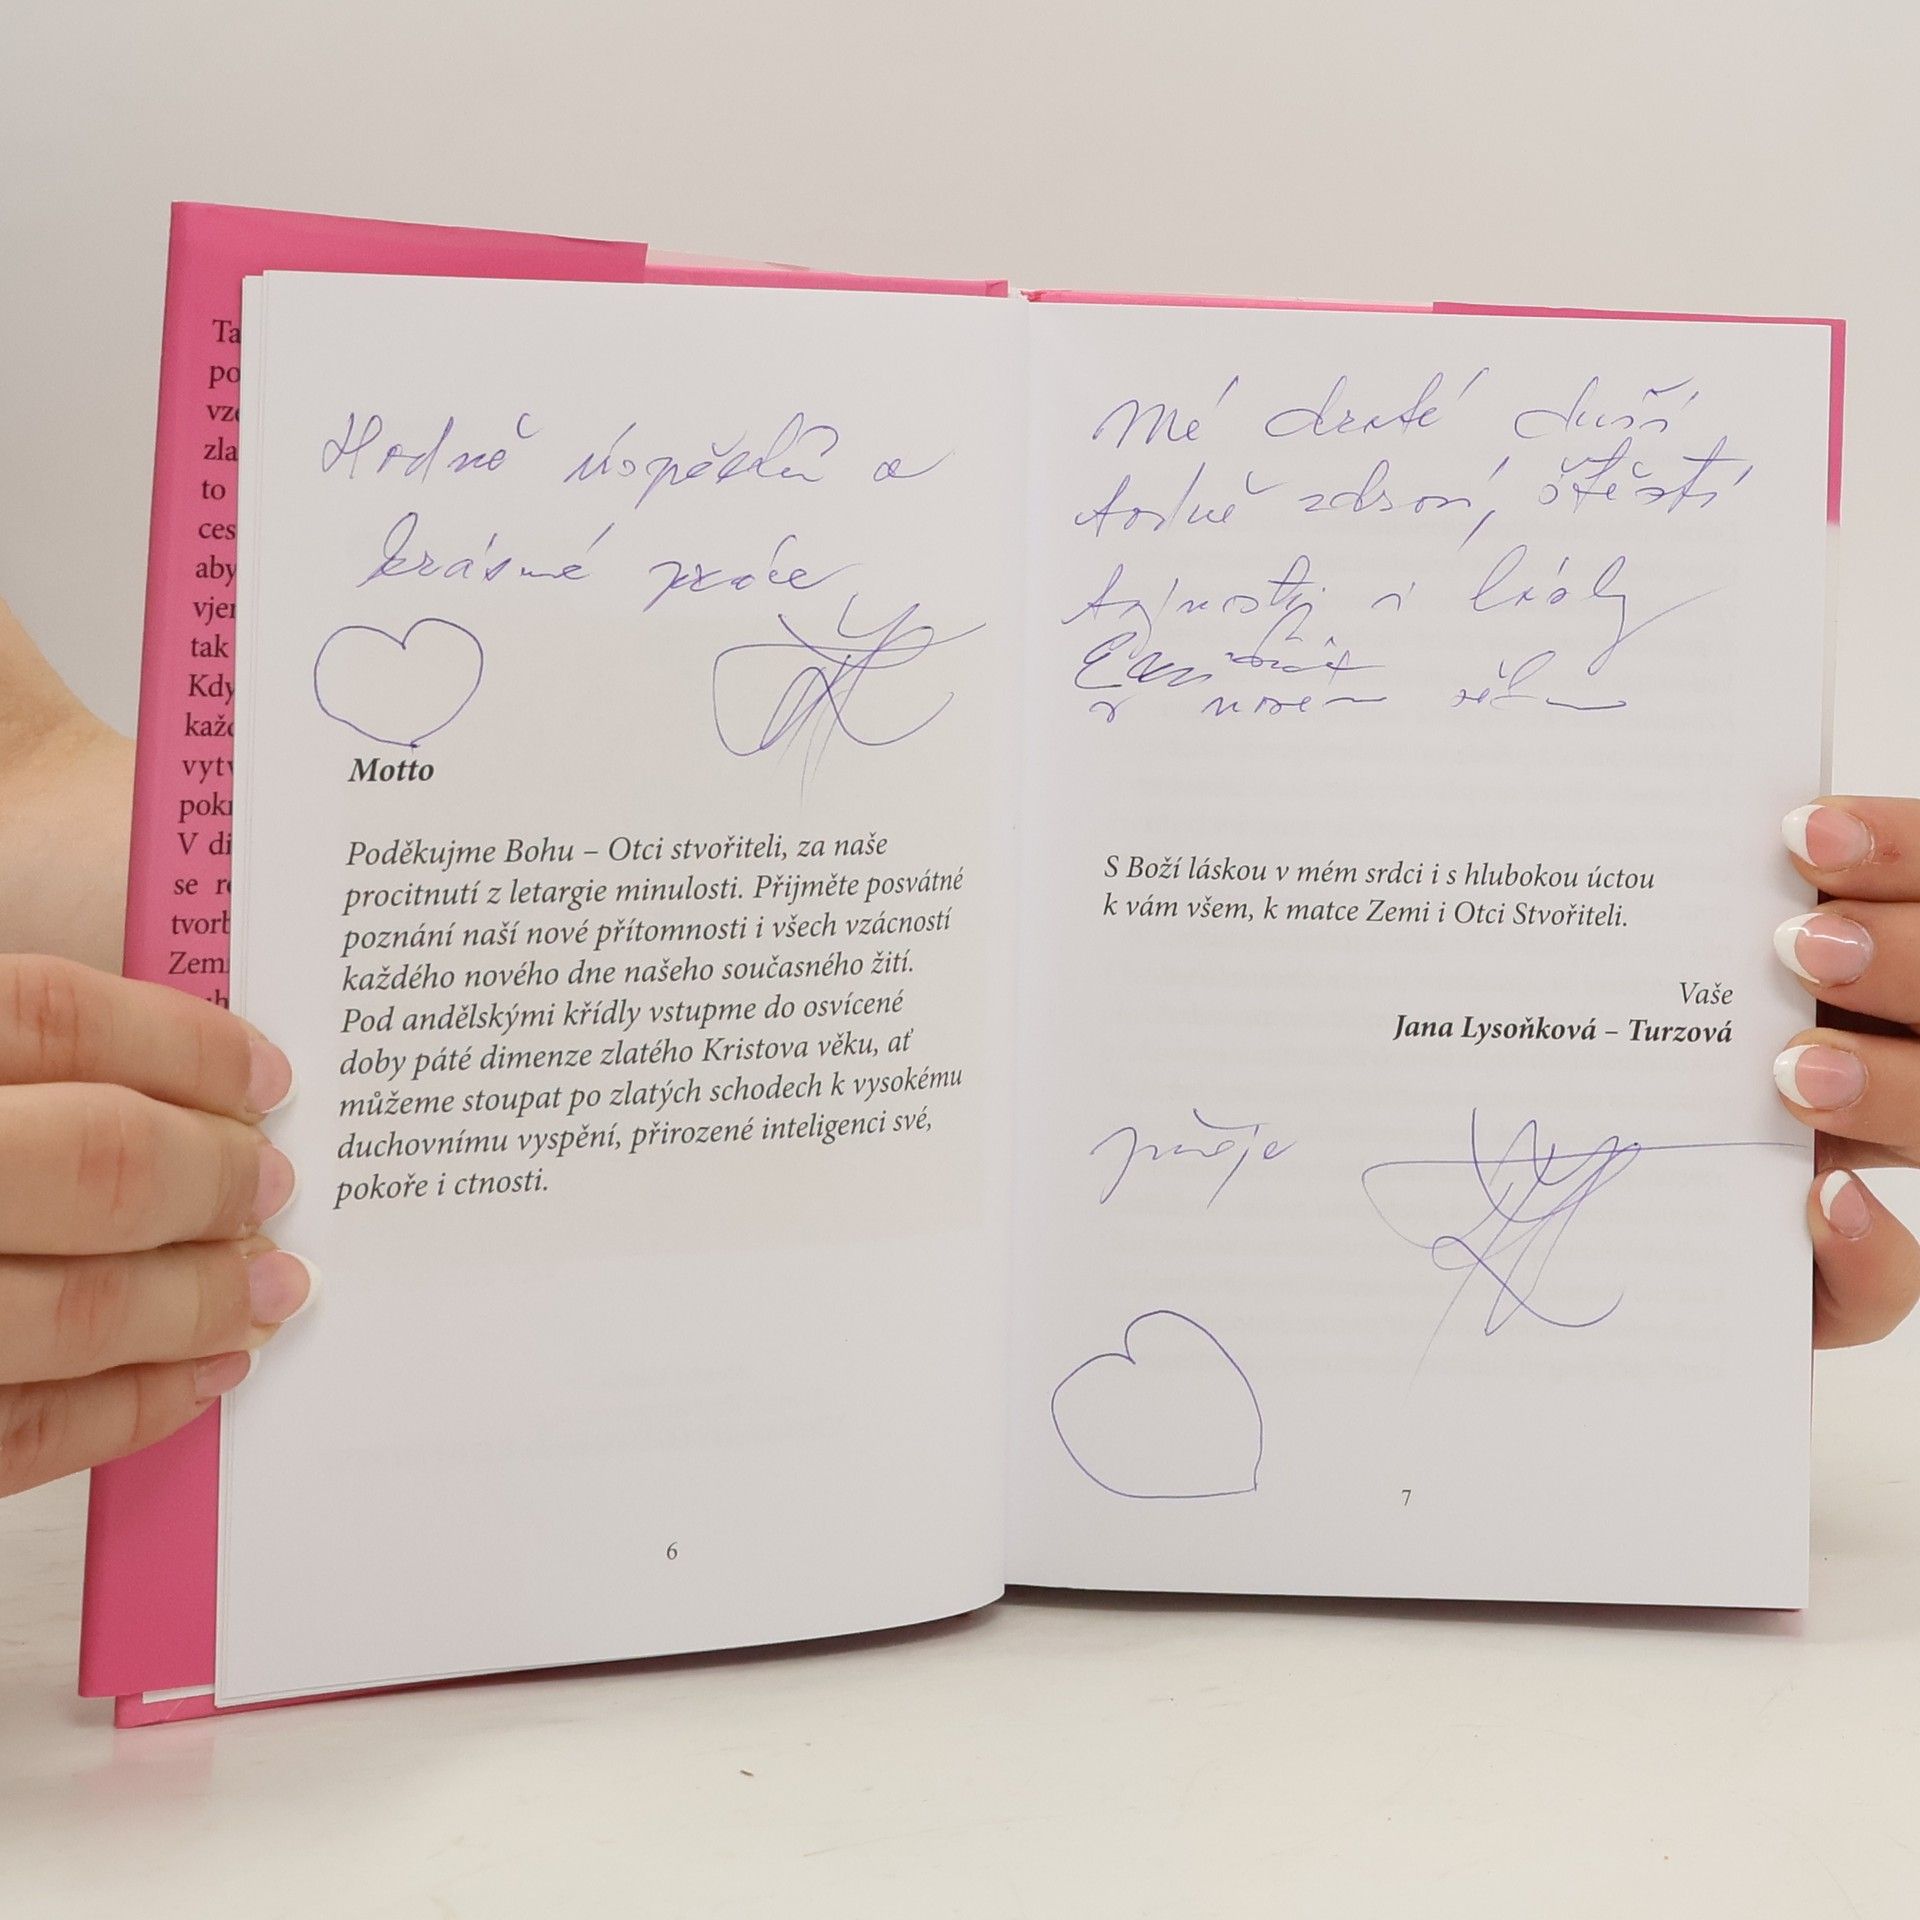 Ta
po
vz
zla
to
ces
aby
vjer
tak
Kdy
kaž
vyt
pok
V di
se
tvor
Zem
Hodně úspěchů a
krásné práce
Motto
Poděkujme Bohu – Otci stvořiteli, za naše
procitnutí z letargie minulosti. Přijměte posvátné
poznání naší nové přítomnosti i všech vzácností
každého nového dne našeho současného žití.
Pod andělskými křídly vstupme do osvícené
doby páté dimenze zlatého Kristova věku, ať
můžeme stoupat po zlatých schodech k vysokému
duchovnímu vyspění, přirozené inteligenci své,
pokoře i ctnosti.
6
Mé drahé duši
hodně zdraví, štěstí
hojnosti i lásky
v novém
S Boží láskou v mém srdci i s hlubokou úctou
k vám všem, k matce Zemi i Otci Stvořiteli.
Vaše
Jana Lysoňková – Turzová
přeje
7